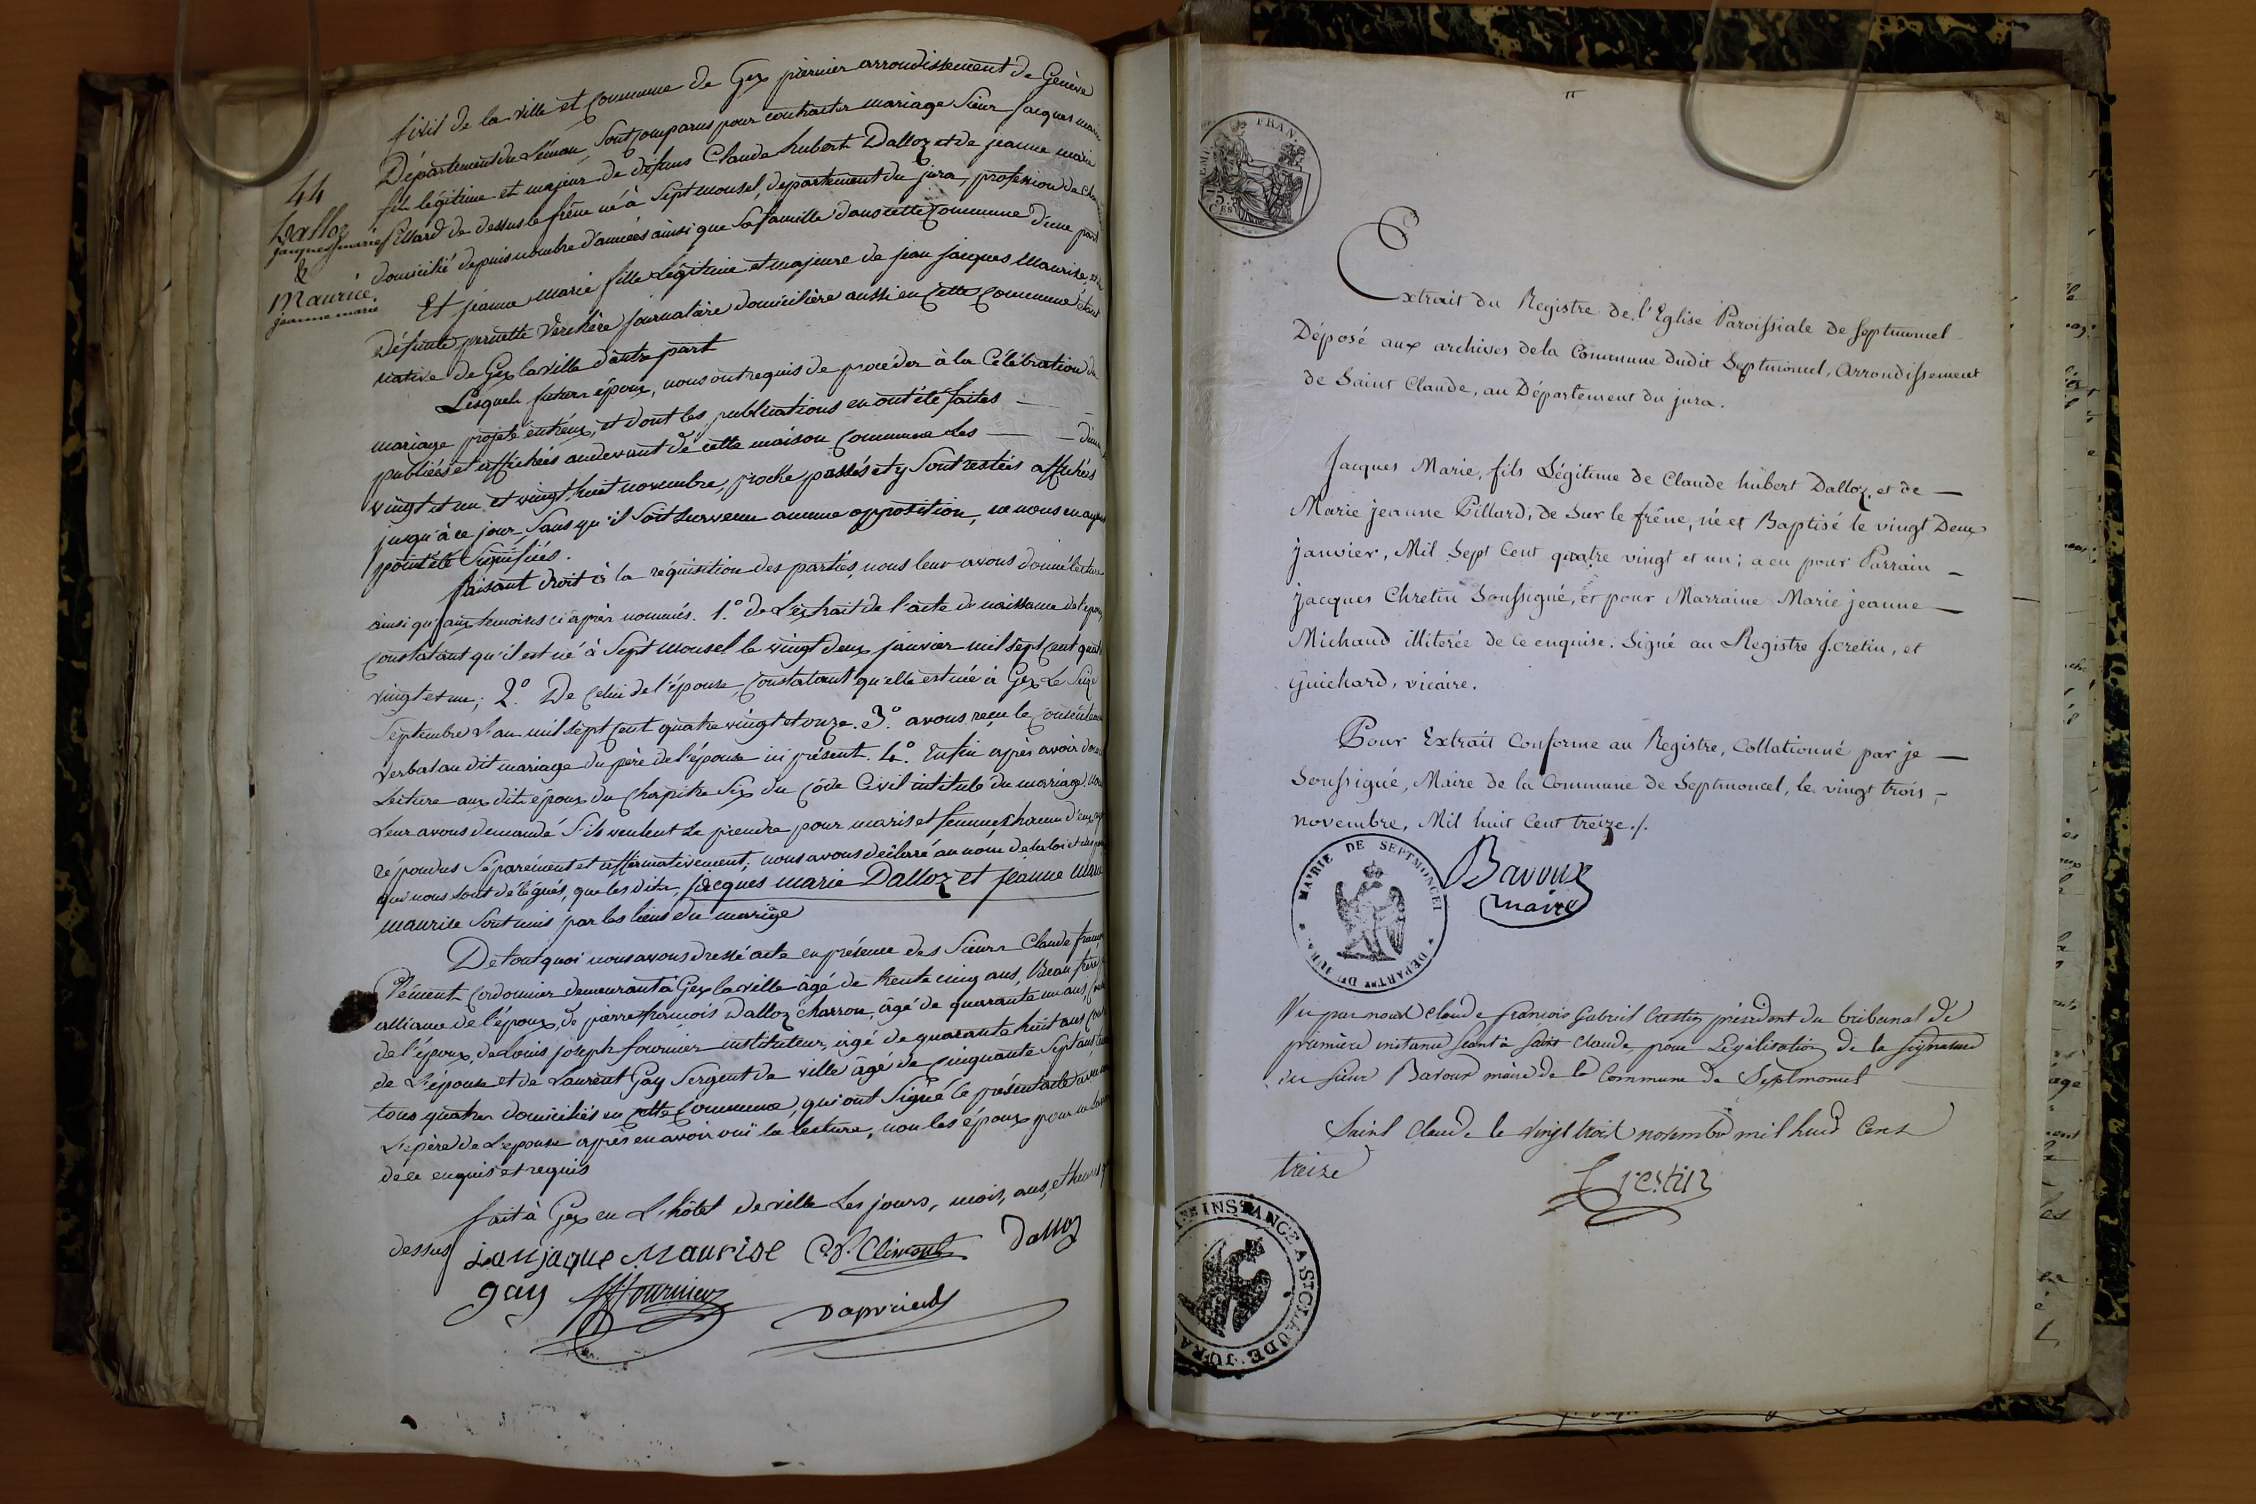 Civil de la ville et Commune de Gex premier arrondissement de Genève
Département du Léman, Sont comparus pour contracter mariage Sieur Jacques marie
fils légitime et majeur de défuns Claude hubert Dalloz et de jeanne marie
44
Dalloz
jacques marie
&
Maurice
jeanne marie
Pillard de dessus le frêne né à Sept moncel, departement du jura, profession de
domicilié depuis nombre d'années ainsi que sa famille dans cette Commune d'une part
Et jeanne marie fille légitime et majeure de jean jacques Maurise, et de
défunte pernette Verchère journalière domicilière aussi en cette Commune étant
native de Gex la ville d'autre part
Lesquels futurs époux, nous ont requis de procéder à la Célébration du
mariage projeté entr'eux, et dont les publications en ont été faites
publiées et affichées au devant de cette maison Commune Les
vingt et un et vingt huit novembre, proche passés et y sont restées affichées
jusqu'à ce jour, Sans qu'il soit survenu aucune opposition, ne nous en ayant
point été signifiés.
faisant droit à la réquisition des parties, nous leur avons donné lecture
ainsi qu'aux témoins ci après nommés. 1.° de L'extrait de l'acte de naissance de l'époux
Constatant qu'il est né à Sept moncel le vingt deux janvier mil sept cent quatre
vingt et un; 2.° De celui de l'épouse, Constatant qu'elle est née à Gex Le Seize
Septembre L'an mil sept cent quatre vingt et onze. 3.° avons reçu le consentement
verbal au dit mariage du père de l'épouse ici présent. 4.° Enfin après avoir donné
Lecture aux dits époux du Chapitre Six du Code Civil intitulé du mariage, nous
Leur avons demandé S'ils veulent se prendre pour maris et femmes, chacun d'eux ayant
répondus séparément et affirmativement; nous avons déclaré au nom de la loi et
qui nous sont délégués, que les dits, jacques marie Dalloz et jeanne Marie
maurise sont unis par les liens du mariage
De tout quoi nous avons dressé acte en présence des Sieurs Claude françois
Clément Cordonnier demeurant à Gex la ville âgé de trente cinq ans, Beau frère
alliance de l'époux, de pierre françois Dalloz charron, âgé de quarante un ans,
de l'époux, de Louis joseph fournier instituteur, âgé de quarante huit ans
de L'épouse et de Laurent Gay Sergent de ville âgé de cinquante Sept ans,
tous quatre domiciliés en cette Commune, qui ont Signé le présent acte avec
L'e père de L'épouse après en avoir ouï la lecture, non les époux pour ne savoir
de ce enquis et requis
fait à Gex en L'hôtel de ville Les jours, mois, ans, et heures
dessus
jan jaque Maurise C.f. Clement Dalloz
gay Fournier
Extrait du Registre de l'Eglise Paroissiale de Septmoncel
Déposé aux archives de la Commune dudit Septmoncel, Arrondissement
de Saint Claude, au Département du jura.
Jacques Marie, fils Légitime de Claude hubert Dalloz, et de
Marie jeanne Pillard, de Sur le frêne, né et Baptisé le vingt Deux
janvier, Mil Sept Cent quatre vingt et un; a eu pour Parrain
jacques Chretin Soussigné, et pour Marraine Marie jeanne
Michaud illiterée de ce enquise. Signé au Registre J. cretin, et
Guichard, vicaire.
Pour Extrait Conforme au Registre, Collationné par je
Soussigné, Maire de la Commune de Septmoncel, le vingt trois
novembre, Mil huit Cent treize./.
MAIRIE DE SEPTMONCEL
* DEPART.T DU JURA *
Bavoux
maire
Vu par nous Claude françois Gabriel Crestin président du tribunal de
première instance séant à Saint Claude, pour Légalisation de la signature
du sieur Bavoux maire de la Commune de Septmoncel
Saint Claude le vingt trois novembre mil huit Cent
treize
Crestin
INSTANCE A ST CLAUDE JURA